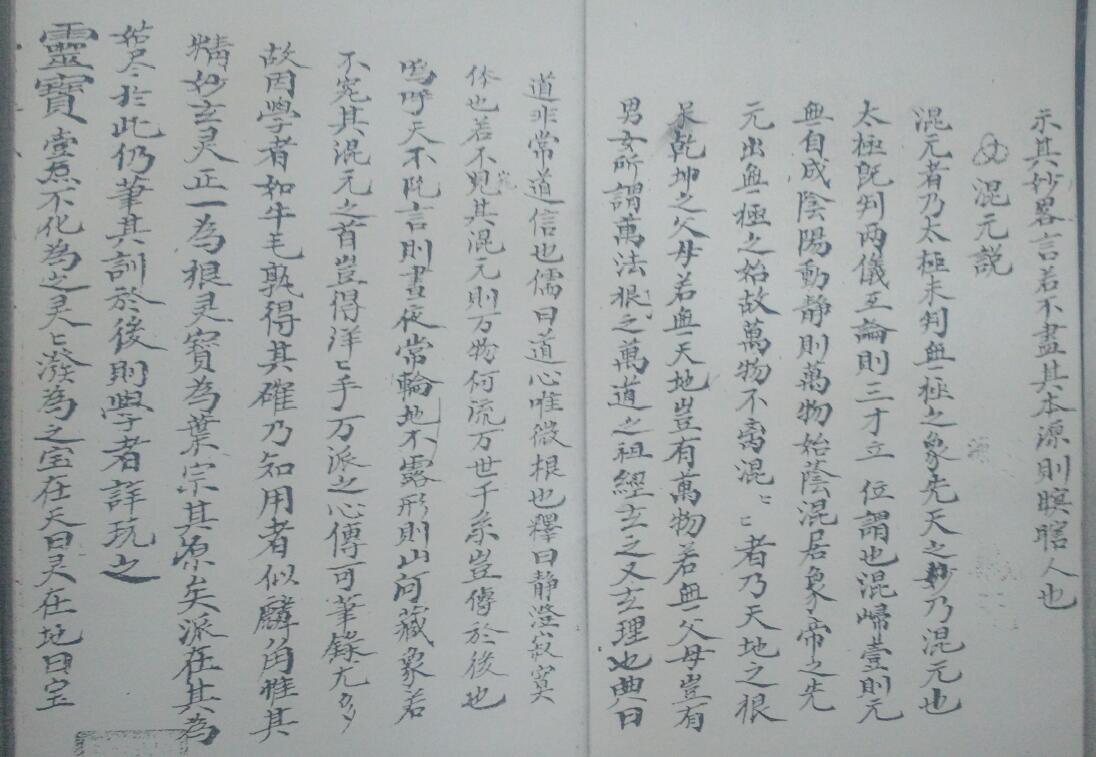 示其妙畧言若不盡其本源則瞑瞎人也
混元説
混元者乃太極未判無極之象先天之妙乃混元也
太極既判两儀互論則三才立位謂也混歸壹則元
無自成陰陽動静則萬物始蔭混居象帝之先
元出無極之始故萬物不离混〻〻者乃天地之根
乾坤之父母若無天地豈有萬物若無父母豈有
男女所謂萬法根之萬道之祖經玄之又玄理也典曰
道非常道信也儒曰道心唯微根也釋曰静澄寂寞
体也若不見其混元則万物何流万世千系豈傳於後也
嗚呼天不言則晝夜常輪地不露形則山河藏象若
不究其混元之首豈得洋〻乎万派之心傳可筆錄
故因學者如牛毛孰得其確乃知用者似麟角惟其
精妙玄灵正一為根灵寳為葉宗其原矣派在其為
始尽於此仍筆其訓於後則學者詳玩之
靈寳壹炁不化為之灵〻潑為之宝在天曰灵在地曰宝